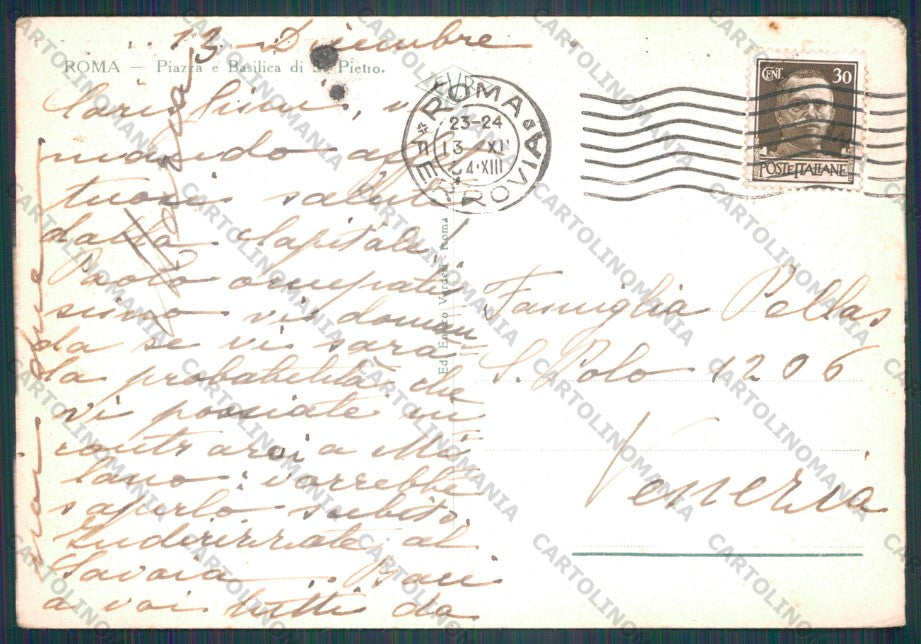 13 Dicembre
ROMA — Piazza e Basilica di S. Pietro.
Carissimi, vi
mando affet
tuosi saluti
dalla Capitale.
Paolo occupatis
simo vi doman
da se vi sarà
la probabilità che
vi possiate in
contrarci a Mi
lano: vorrebbe
saperlo subito.
Indirizzate al
Savoia. Baci
a voi tutti da
Ed. Enrico Verdesi - Roma
ROMA
FERROVIA
23-24
13 XII
34·XIII
CENT. 30
POSTE ITALIANE
Famiglia Pellas
S. Polo 1206
Venezia
CARTOLINOMANIA